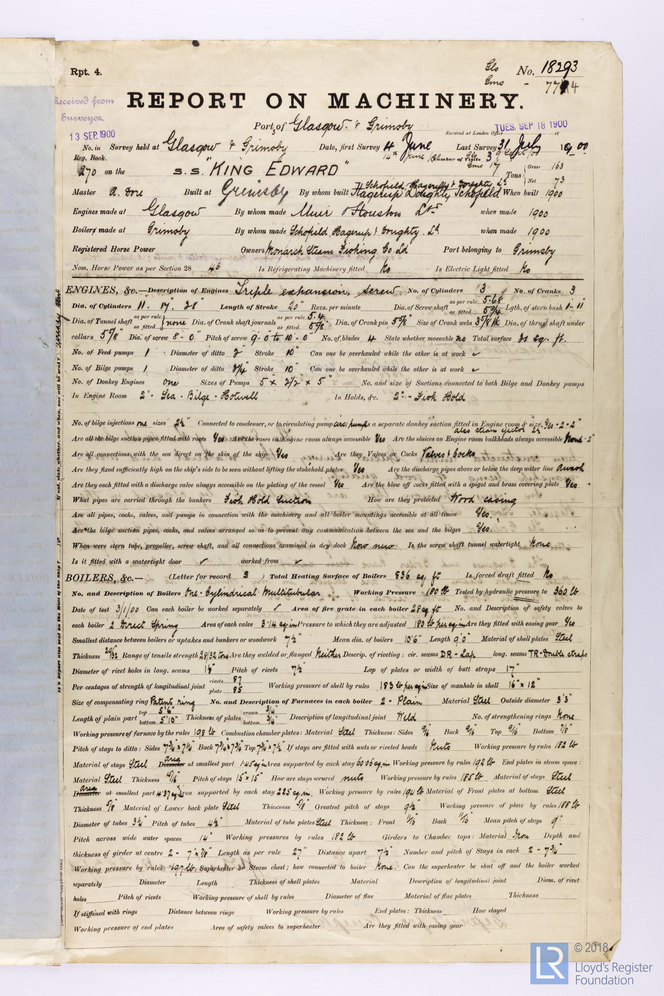 Rpt. 4.
Gls No. 18293
Gms 7714
Received from Surveyor
13 SEP. 1900
REPORT ON MACHINERY.
Port of Glasgow & Grimsby
Received at London Office TUES. SEP 18 1900
No. in Survey held at Glasgow & Grimsby Date, first Survey 4 June Last Survey 31 July 1900
Reg. Book.
270 on the S.S. "KING EDWARD" Tons Gross 163 Net 73
Master Built at Grimsby By whom built When built 1900
Engines made at Glasgow By whom made Muir & Houston Ld when made 1900
Boilers made at Grimsby By whom made Schofield, Hagerup & Doughty Ld when made 1900
Registered Horse Power Owners Monarch Steam Fishing Co Ld Port belonging to Grimsby
Nom. Horse Power as per Section 28 46 Is Refrigerating Machinery fitted No Is Electric Light fitted No
ENGINES, &c.—Description of Engines Triple expansion, screw No. of Cylinders 3 No. of Cranks 3
Dia. of Cylinders 11. 17. 30" Length of Stroke 20" Revs. per minute Dia. of Screw shaft as per rule 5.68 as fitted Lgth. of stern bush
Dia. of Tunnel shaft as per rule as fitted none Dia. of Crank shaft journals as per rule 5.4 as fitted 5 7/8 Dia. of Crank pin 5 7/8 Size of Crank webs Dia. of thrust shaft under
collars 5 7/8 Dia. of screw 8-0 Pitch of screw 9-0 to 10-0 No. of blades 4 State whether moveable no Total surface sq. ft.
No. of Feed pumps 1 Diameter of ditto 2 Stroke 10" Can one be overhauled while the other is at work ✓
No. of Bilge pumps 1 Diameter of ditto Stroke 10" Can one be overhauled while the other is at work ✓
No. of Donkey Engines one Sizes of Pumps 5 x 3 1/2 x 5" No. and size of Suctions connected to both Bilge and Donkey pumps
In Engine Room 2" - Sea - Bilge - Hotwell In Holds, &c. 2" - Fish Hold
No. of bilge injections one sizes Connected to condenser, or to circulating pump Is a separate donkey suction fitted in Engine room & size Yes - 2 - 2"
Are all the bilge suction pipes fitted with roses Yes Are the roses in Engine room always accessible Yes Are the sluices on Engine room bulkheads always accessible None
Are all connections with the sea direct on the skin of the ship Yes Are they Valves or Cocks Valves & Cocks
Are they fixed sufficiently high on the ship's side to be seen without lifting the stokehold plates Yes Are the discharge pipes above or below the deep water line
Are they each fitted with a discharge valve always accessible on the plating of the vessel Yes Are the blow off cocks fitted with a spigot and brass covering plate Yes
What pipes are carried through the bunkers Fish Hold Suction How are they protected Wood casing
Are all pipes, cocks, valves, and pumps in connection with the machinery and all boiler mountings accessible at all times Yes
Are the bilge suction pipes, cocks, and valves arranged so as to prevent any communication between the sea and the bilges Yes
When were stern tube, propeller, screw shaft, and all connections examined in dry dock Now new Is the screw shaft tunnel watertight None
Is it fitted with a watertight door ✓ worked from ✓
BOILERS, &c.— (Letter for record S ) Total Heating Surface of Boilers 836 sq. ft Is forced draft fitted No
No. and Description of Boilers One-Cylindrical Multitubular Working Pressure 180 lb Tested by hydraulic pressure to 360 lb
Date of test Can each boiler be worked separately ✓ Area of fire grate in each boiler 28 sq ft No. and Description of safety valves to
each boiler 2 Direct Spring Area of each valve 3.14 sq in Pressure to which they are adjusted Are they fitted with easing gear Yes
Smallest distance between boilers or uptakes and bunkers or woodwork 7 1/2 Mean dia. of boilers 10'6" Length 9'0" Material of shell plates Steel
Thickness Range of tensile strength 28/32 tons Are they welded or flanged Neither Descrip. of riveting: cir. seams DR-Lap long. seams TR-Double straps
Diameter of rivet holes in long. seams Pitch of rivets 7 1/2 Lap of plates or width of butt straps 17"
Per centages of strength of longitudinal joint rivets 87 plate 85 Working pressure of shell by rules 183 lb per sq in Size of manhole in shell 16" x 12"
Size of compensating ring Patent ring No. and Description of Furnaces in each boiler 2 - Plain Material Steel Outside diameter 3'3"
Length of plain part top 5'6" bottom 5'10" Thickness of plates crown 3/4 bottom 3/4 Description of longitudinal joint Weld No. of strengthening rings None
Working pressure of furnace by the rules 198 lb Combustion chamber plates: Material Steel Thickness: Sides Back Top Bottom
Pitch of stays to ditto: Sides Back Top If stays are fitted with nuts or riveted heads Nuts Working pressure by rules 182 lb
Material of stays Steel Area at smallest part Area supported by each stay Working pressure by rules 192 lb End plates in steam space:
Material Steel Thickness Pitch of stays 15" x 15" How are stays secured nuts Working pressure by rules 185 lb Material of stays Steel
Area at smallest part Area supported by each stay 225 sq in Working pressure by rules 194 lb Material of Front plates at bottom Steel
Thickness Material of Lower back plate Steel Thickness Greatest pitch of stays 9 1/2 Working pressure of plate by rules 188 lb
Diameter of tubes 3 1/4 Pitch of tubes 4 1/2 Material of tube plates Steel Thickness: Front Back Mean pitch of stays 9"
Pitch across wide water spaces 14" Working pressures by rules 182 lb Girders to Chamber tops: Material Iron Depth and
thickness of girder at centre Length as per rule 27" Distance apart 7 1/2 Number and pitch of Stays in each 2 - 7 3/4"
Working pressure by rules Superheater or Steam chest; how connected to boiler None Can the superheater be shut off and the boiler worked
separately Diameter Length Thickness of shell plates Material Description of longitudinal joint Diam. of rivet
holes Pitch of rivets Working pressure of shell by rules Diameter of flue Material of flue plates Thickness
If stiffened with rings Distance between rings Working pressure by rules End plates: Thickness How stayed
Working pressure of end plates Area of safety valves to superheater Are they fitted with easing gear
© 2018
Lloyd's Register
Foundation